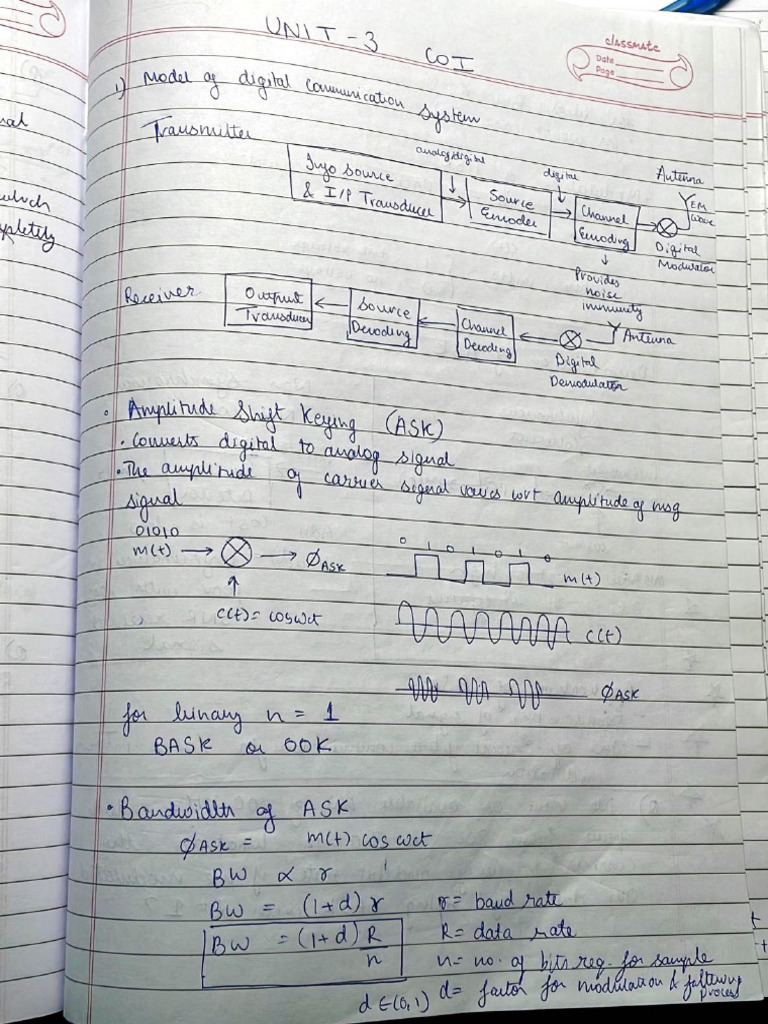 UNIT - 3 COI
classmate
Date
Page
1) Model of digital communication system
Transmitter
analog/digital
digital
Antenna
Info source
& I/P Transducer
Source
Encoder
Channel
Encoding
EM
wave
Digital
Modulator
Provides
noise
immunity
Receiver
Output
Transducer
Source
Decoding
Channel
Decoding
Antenna
Digital
Demodulator
• Amplitude Shift Keying (ASK)
• Converts digital to analog signal
• The amplitude of carrier signal varies wrt amplitude of msg
signal
01010
m(t) → ⊗ → ϕASK
c(t) = cos wct
0 1 0 1 0 1 0
m(t)
c(t)
ϕASK
for binary n = 1
BASK or OOK
• Bandwidth of ASK
ϕASK = m(t) cos wct
BW ∝ r
BW = (1+d) r r = baud rate
BW = (1+d) R/n R = data rate
n = no. of bits req. for sample
d ∈ (0,1) d = factor for modulation & filtering
process
which